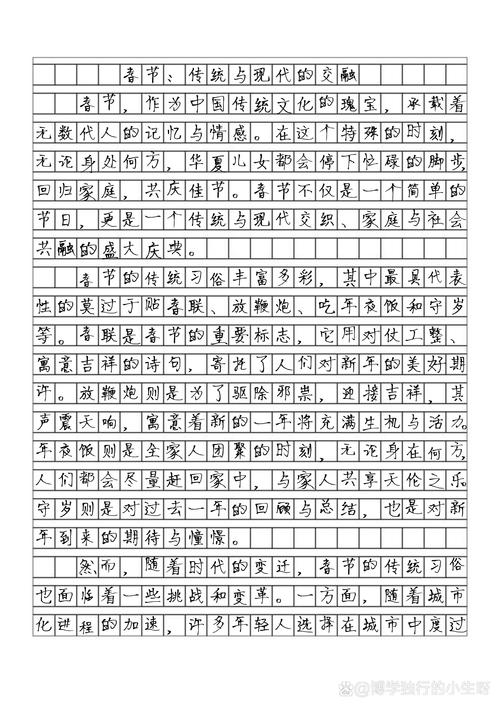 春节：传统与现代的交融
春节，作为中国传统文化的瑰宝，承载着
无数代人的记忆与情感。在这个特殊的时刻，
无论身处何方，华夏儿女都会停下忙碌的脚步，
回归家庭，共庆佳节。春节不仅是一个简单的
节日，更是一个传统与现代交织、家庭与社会
共融的盛大庆典。
春节的传统习俗丰富多彩，其中最具代表
性的莫过于贴春联、放鞭炮、吃年夜饭和守岁
等。春联是春节的重要标志，它用对仗工整、
寓意吉祥的诗句，寄托了人们对新年的美好期
许。放鞭炮则是为了驱除邪祟，迎接吉祥，其
声震天响，寓意着新的一年将充满生机与活力。
年夜饭则是全家人团聚的时刻，无论身在何方，
人们都会尽量赶回家中，与家人共享天伦之乐。
守岁则是对过去一年的回顾与总结，也是对新
年到来的期待与憧憬。
然而，随着时代的变迁，春节的传统习俗
也面临着一些挑战和变革。一方面，随着城市
化进程的加速，许多年轻人选择在城市中度过
@博学独行的小生呀